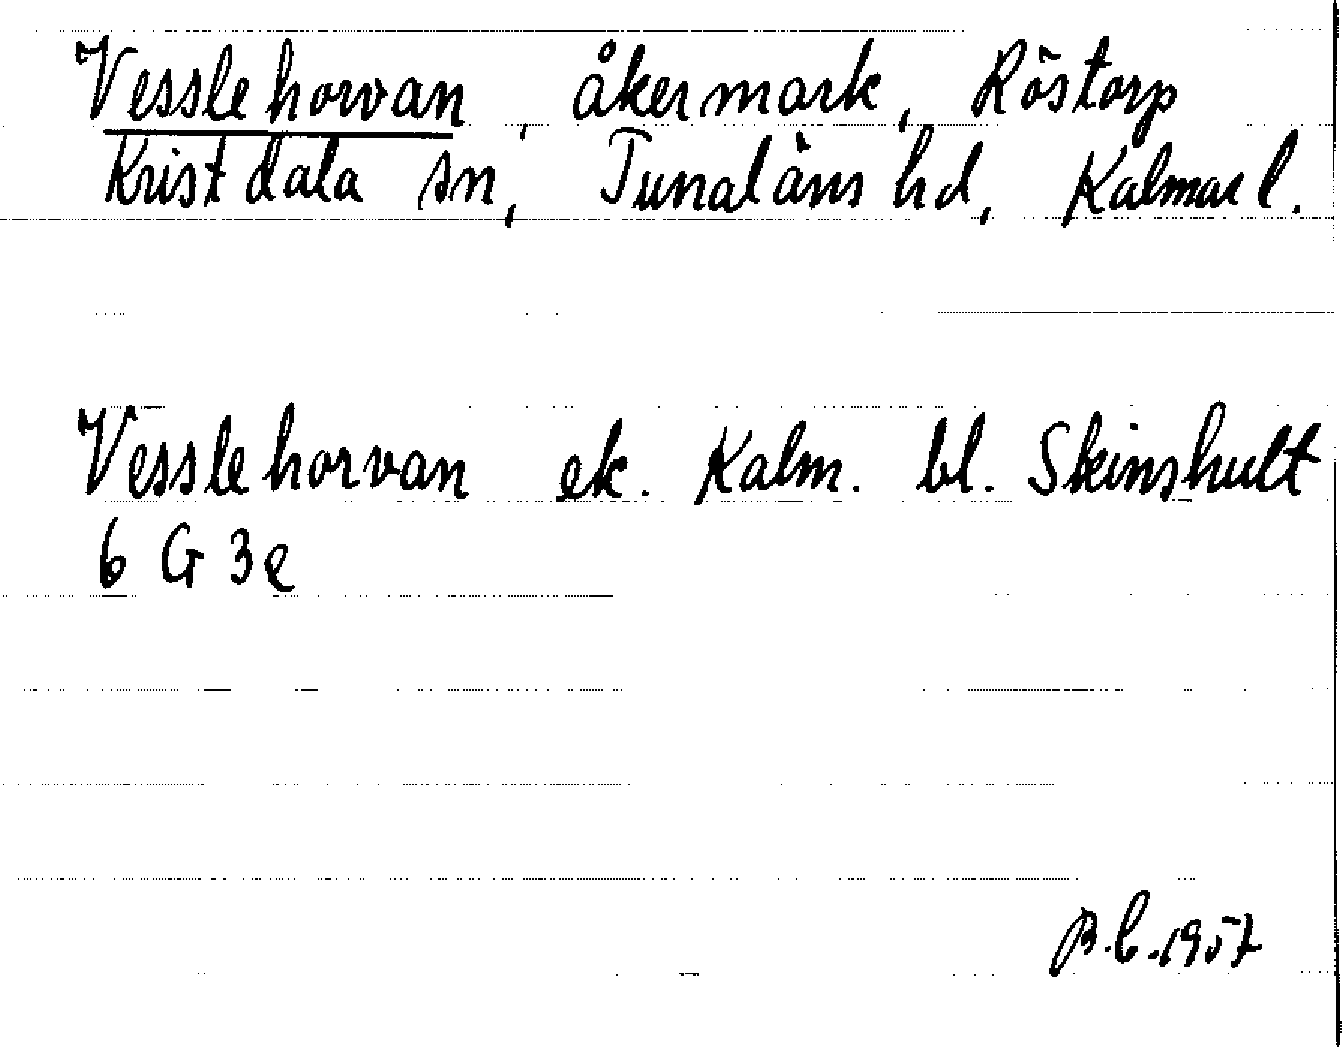 Vesslehorvan, åkermark, Röstorp
Kristdala sn, Tunaläns hd, Kalmar l.
Vesslehorvan ek. Kalm. bl. Skinshult
6 G 3e
B.C. 1957